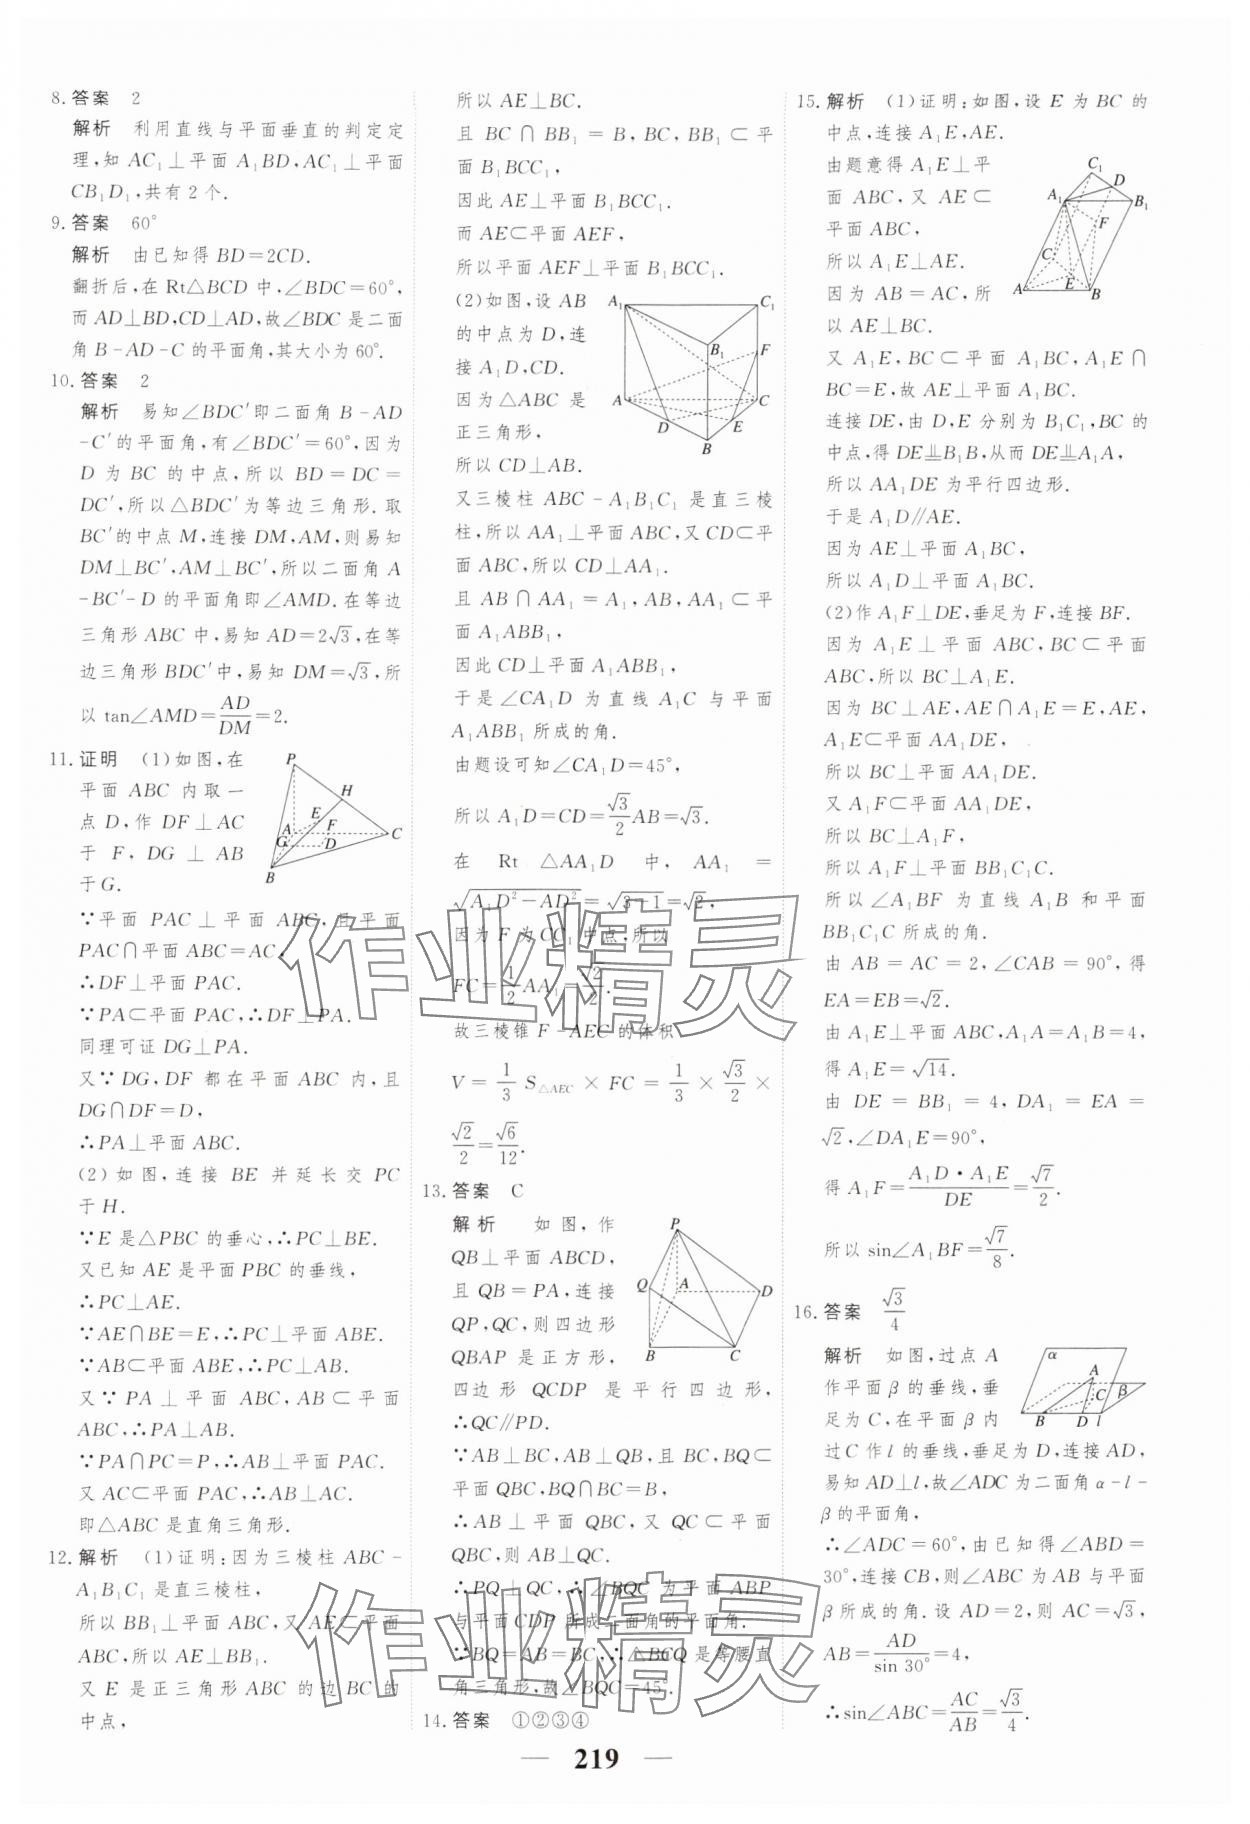 8.答案 2
解析 利用直线与平面垂直的判定定
理,知 AC₁⊥平面 A₁BD,AC₁⊥平面
CB₁D₁,共有 2 个.
9.答案 60°
解析 由已知得 BD=2CD.
翻折后,在 Rt△BCD 中,∠BDC=60°,
而 AD⊥BD,CD⊥AD,故∠BDC 是二面
角 B-AD-C 的平面角,其大小为 60°.
10.答案 2
解析 易知∠BDC′即二面角 B-AD
-C′的平面角,有∠BDC′=60°,因为
D 为 BC 的中点,所以 BD=DC=
DC′,所以△BDC′为等边三角形.取
BC′的中点 M,连接 DM,AM,则易知
DM⊥BC′,AM⊥BC′,所以二面角 A
-BC′-D 的平面角即∠AMD.在等边
三角形 ABC 中,易知 AD=2√3,在等
边三角形 BDC′中,易知 DM=√3,所
以 tan∠AMD=AD/DM=2.
11.证明 (1)如图,在
平面 ABC 内取一
点 D,作 DF⊥AC
于 F,DG⊥AB
于 G.
P
H
E
A
F
C
G
D
B
∵平面 PAC⊥平面 ABC,且平面
PAC∩平面 ABC=AC,
∴DF⊥平面 PAC.
∵PA⊂平面 PAC,∴DF⊥PA.
同理可证 DG⊥PA.
又∵DG,DF 都在平面 ABC 内,且
DG∩DF=D,
∴PA⊥平面 ABC.
(2)如图,连接 BE 并延长交 PC
于 H.
∵E 是△PBC 的垂心,∴PC⊥BE.
又已知 AE 是平面 PBC 的垂线,
∴PC⊥AE.
∵AE∩BE=E,∴PC⊥平面 ABE.
∵AB⊂平面 ABE,∴PC⊥AB.
又∵PA⊥平面 ABC,AB⊂平面
ABC,∴PA⊥AB.
∵PA∩PC=P,∴AB⊥平面 PAC.
又 AC⊂平面 PAC,∴AB⊥AC.
即△ABC 是直角三角形.
12.解析 (1)证明:因为三棱柱 ABC-
A₁B₁C₁ 是直三棱柱,
所以 BB₁⊥平面 ABC,又 AE⊂平面
ABC,所以 AE⊥BB₁.
又 E 是正三角形 ABC 的边 BC 的
中点,
所以 AE⊥BC.
且 BC∩BB₁=B,BC,BB₁⊂平
面 B₁BCC₁,
因此 AE⊥平面 B₁BCC₁.
而 AE⊂平面 AEF,
所以平面 AEF⊥平面 B₁BCC₁.
(2)如图,设 AB
的中点为 D,连
接 A₁D,CD.
因为△ABC 是
正三角形,
所以 CD⊥AB.
A₁
C₁
B₁
F
A
C
D
E
B
又三棱柱 ABC-A₁B₁C₁ 是直三棱
柱,所以 AA₁⊥平面 ABC,又 CD⊂平
面 ABC,所以 CD⊥AA₁.
且 AB∩AA₁=A,AB,AA₁⊂平
面 A₁ABB₁,
因此 CD⊥平面 A₁ABB₁,
于是∠CA₁D 为直线 A₁C 与平面
A₁ABB₁ 所成的角.
由题设可知∠CA₁D=45°,
所以 A₁D=CD=√3/2AB=√3.
在 Rt△AA₁D 中,AA₁=
√(A₁D²-AD²)=√(3-1)=√2,
因为 F 为 CC₁ 中点,所以
FC=1/2AA₁=√2/2.
故三棱锥 F-AEC 的体积
V=1/3 S△AEC×FC=1/3×√3/2×
√2/2=√6/12.
13.答案 C
解析 如图,作
QB⊥平面 ABCD,
且 QB=PA,连接
QP,QC,则四边形
QBAP 是正方形,
P
Q
A
D
B
C
四边形 QCDP 是平行四边形,
∴QC∥PD.
∵AB⊥BC,AB⊥QB,且 BC,BQ⊂
平面 QBC,BQ∩BC=B,
∴AB⊥平面 QBC,又 QC⊂平面
QBC,则 AB⊥QC.
∴PQ⊥QC,∴∠BQC 为平面 ABP
与平面 CDP 所成二面角的平面角.
∵BQ=AB=BC,∴△BCQ 是等腰直
角三角形,故∠BQC=45°.
14.答案 ①②③④
15.解析 (1)证明:如图,设 E 为 BC 的
中点,连接 A₁E,AE.
由题意得 A₁E⊥平
面 ABC,又 AE⊂
平面 ABC,
所以 A₁E⊥AE.
因为 AB=AC,所
以 AE⊥BC.
C₁
D
A₁
B₁
F
C
A
E
B
又 A₁E,BC⊂平面 A₁BC,A₁E∩
BC=E,故 AE⊥平面 A₁BC.
连接 DE,由 D,E 分别为 B₁C₁,BC 的
中点,得 DE⫫B₁B,从而 DE⫫A₁A,
所以 AA₁DE 为平行四边形.
于是 A₁D∥AE.
因为 AE⊥平面 A₁BC,
所以 A₁D⊥平面 A₁BC.
(2)作 A₁F⊥DE,垂足为 F,连接 BF.
因为 A₁E⊥平面 ABC,BC⊂平面
ABC,所以 BC⊥A₁E.
因为 BC⊥AE,AE∩A₁E=E,AE,
A₁E⊂平面 AA₁DE,
所以 BC⊥平面 AA₁DE.
又 A₁F⊂平面 AA₁DE,
所以 BC⊥A₁F,
所以 A₁F⊥平面 BB₁C₁C.
所以∠A₁BF 为直线 A₁B 和平面
BB₁C₁C 所成的角.
由 AB=AC=2,∠CAB=90°,得
EA=EB=√2.
由 A₁E⊥平面 ABC,A₁A=A₁B=4,
得 A₁E=√14.
由 DE=BB₁=4,DA₁=EA=
√2,∠DA₁E=90°,
得 A₁F=A₁D·A₁E/DE=√7/2.
所以 sin∠A₁BF=√7/8.
16.答案 √3/4
解析 如图,过点 A
作平面 β 的垂线,垂
足为 C,在平面 β 内
α
A
C
β
B
D
l
过 C 作 l 的垂线,垂足为 D,连接 AD,
易知 AD⊥l,故∠ADC 为二面角 α-l-
β 的平面角,
∴∠ADC=60°,由已知得∠ABD=
30°,连接 CB,则∠ABC 为 AB 与平面
β 所成的角.设 AD=2,则 AC=√3,
AB=AD/sin 30°=4,
∴sin∠ABC=AC/AB=√3/4.
作业精灵
作业精灵
219